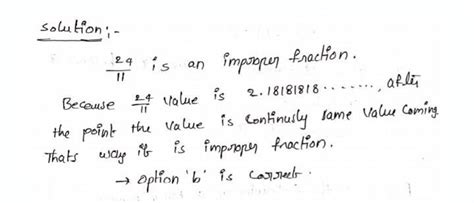 Solution:-
24/11 is an improper fraction.
Because 24/11 value is 2.18181818......., after
the point the value is continusly same value coming
thats way it is improper fraction.
→ option 'b' is correct.